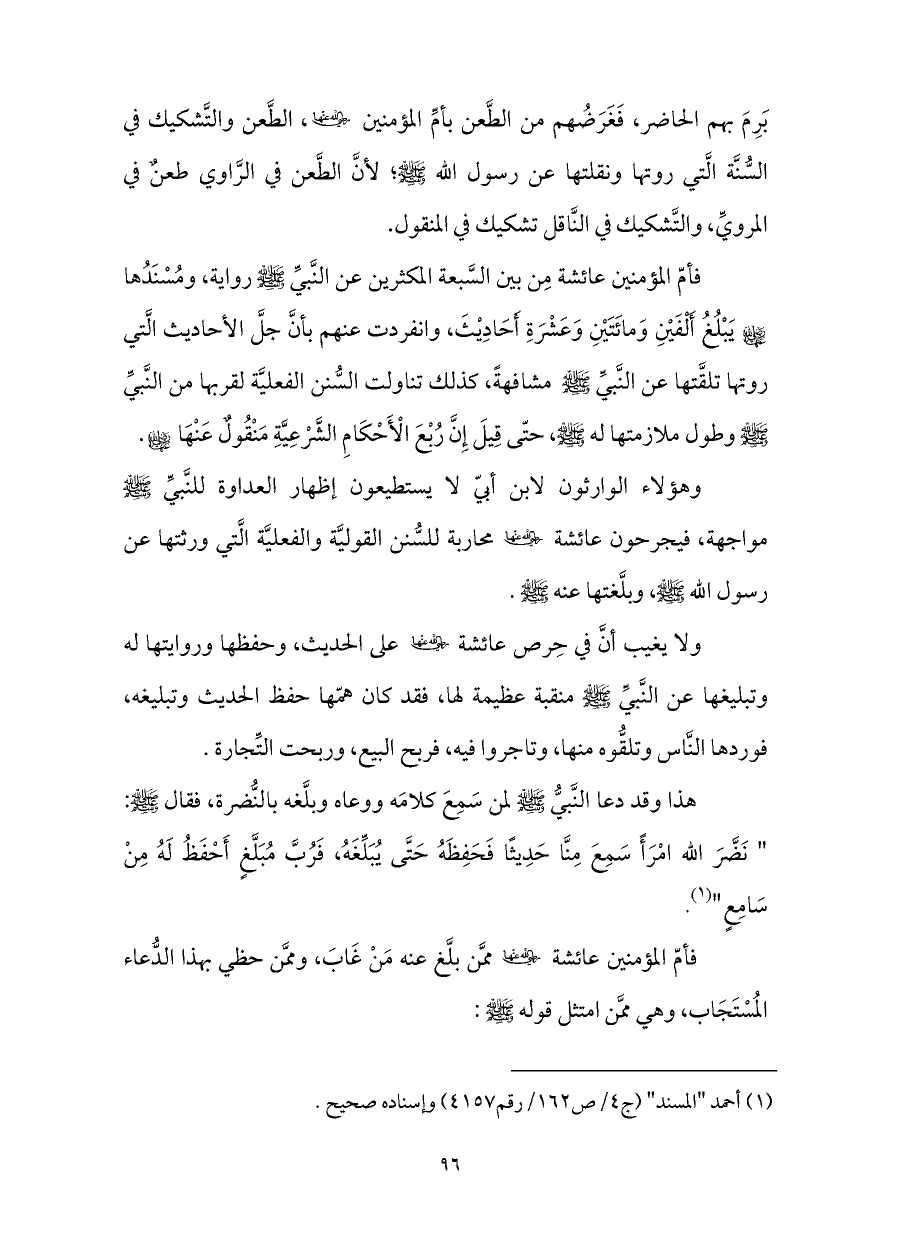 بَرِمَ بهم الحاضر، فَغَرَضُهم من الطَّعن بأمِّ المؤمنين رضي الله عنها، الطَّعن والتَّشكيك في
السُّنَّة الَّتي روتها ونقلتها عن رسول الله ﷺ؛ لأنَّ الطَّعن في الرَّاوي طعنٌ في
المرويِّ، والتَّشكيك في النَّاقل تشكيك في المنقول.
فأمّ المؤمنين عائشة مِن بين السَّبعة المكثرين عن النَّبيِّ ﷺ رواية، ومُسْنَدُها
رضي الله عنها يَبْلُغُ أَلْفَيْنِ وَمائَتَيْنِ وَعَشْرَةِ أَحَادِيْثَ، وانفردت عنهم بأنَّ جلَّ الأحاديث الَّتي
روتها تلقَّتها عن النَّبيِّ ﷺ مشافهةً، كذلك تناولت السُّنن الفعليَّة لقربها من النَّبيِّ
ﷺ وطول ملازمتها له ﷺ، حتّى قِيلَ إِنَّ رُبْعَ الْأَحْكَامِ الشَّرْعِيَّةِ مَنْقُولٌ عَنْهَا رضي الله عنها.
وهؤلاء الوارثون لابن أبيّ لا يستطيعون إظهار العداوة للنَّبيِّ ﷺ
مواجهة، فيجرحون عائشة رضي الله عنها محاربة للسُّنن القوليَّة والفعليَّة الَّتي ورثتها عن
رسول الله ﷺ، وبلَّغتها عنه ﷺ .
ولا يغيب أنَّ في حِرص عائشة رضي الله عنها على الحديث، وحفظها وروايتها له
وتبليغها عن النَّبيِّ ﷺ منقبة عظيمة لها، فقد كان همّها حفظ الحديث وتبليغه،
فوردها النَّاس وتلقُّوه منها، وتاجروا فيه، فربح البيع، وربحت التِّجارة .
هذا وقد دعا النَّبيُّ ﷺ لمن سَمِعَ كلامَه ووعاه وبلَّغه بالنُّضرة، فقال ﷺ:
" نَضَّرَ الله امْرَأً سَمِعَ مِنَّا حَدِيثًا فَحَفِظَهُ حَتَّى يُبَلِّغَهُ، فَرُبَّ مُبَلَّغٍ أَحْفَظُ لَهُ مِنْ
سَامِعٍ"(١).
فأمّ المؤمنين عائشة رضي الله عنها ممَّن بلَّغ عنه مَنْ غَابَ، وممَّن حظي بهذا الدُّعاء
المُسْتَجَاب، وهي ممَّن امتثل قوله ﷺ :
(١) أحمد "المسند" (ج٤/ ص١٦٢/ رقم٤١٥٧) وإسناده صحيح .
٩٦